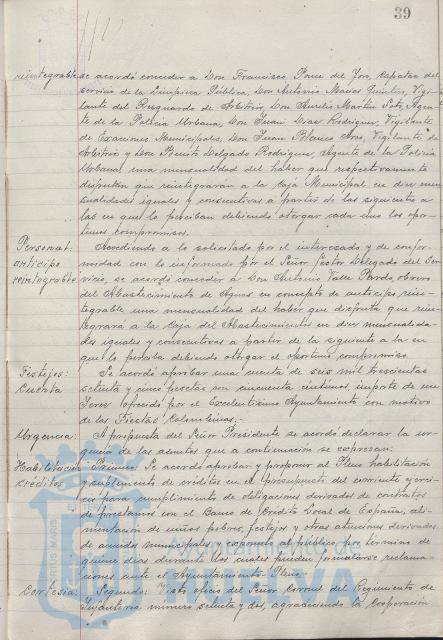 39
reintegrable se acordó conceder a Don Francisco Ponce del Toro, Capataz del
servicio de la Limpieza Pública, Don Antonio Macías Quintín, Vigi-
lante del Resguardo de Arbitrios, Don Aurelio Martín Soto, Agen-
te de la Policía Urbana, Don Juan Díaz Rodríguez, Vigilante
de Exacciones Municipales, Don Juan Blanco, Vigilante de
Arbitrios y Don Benito Delgado Rodríguez, Agente de la Policía
Urbana una mensualidad del haber que respectivamente
disfrutan que reintegrarán a la Caja Municipal en diez men-
sualidades iguales y consecutivas a partir de las siguientes a
las en que lo perciban debiendo otorgar cada uno los opor-
tunos compromisos.
Personal: Accediendo a lo solicitado por el interesado y de confor-
anticipo midad con lo informado por el Señor Gestor Delegado del Ser-
reintegrable vicio, se acordó conceder a Don Antonio Valle Pardo obrero
del Abastecimiento de Aguas en concepto de anticipo rein-
tegrable una mensualidad del haber que disfruta que rein-
tegrará a la Caja del Abastecimiento en diez mensualida-
des iguales y consecutivas a partir de la siguiente a la en
que lo perciba debiendo otorgar el oportuno compromiso.
Festejos: Se acordó aprobar una cuenta de seis mil trescientas
Cuenta setenta y cinco pesetas con cincuenta céntimos, importe de un
ofrecido por el Excelentísimo Ayuntamiento con motivo
de las Fiestas Colombinas.-
Urgencia: A propuesta del Señor Presidente se acordó declarar la ur-
gencia de los asuntos que a continuación se expresan:
Habilitación Primero: Se acordó aprobar y proponer al Pleno habilitación
créditos y suplemento de créditos en el presupuesto del corriente ejerci-
cio para cumplimiento de obligaciones derivadas de contratos
de préstamos con el Banco de Crédito Local de España, ali-
mentación de niños pobres, festejos y otras atenciones derivadas
de acuerdos municipales y exponerlo al público por término de
quince días durante los cuales pueden formularse reclama-
ciones ante el Ayuntamiento Pleno.-
Cortesía: Segundo: Visto oficio del Señor Coronel del Regimiento de
Infantería número setenta y dos, agradeciendo la cooperación
Ayuntamiento de
HUELVA